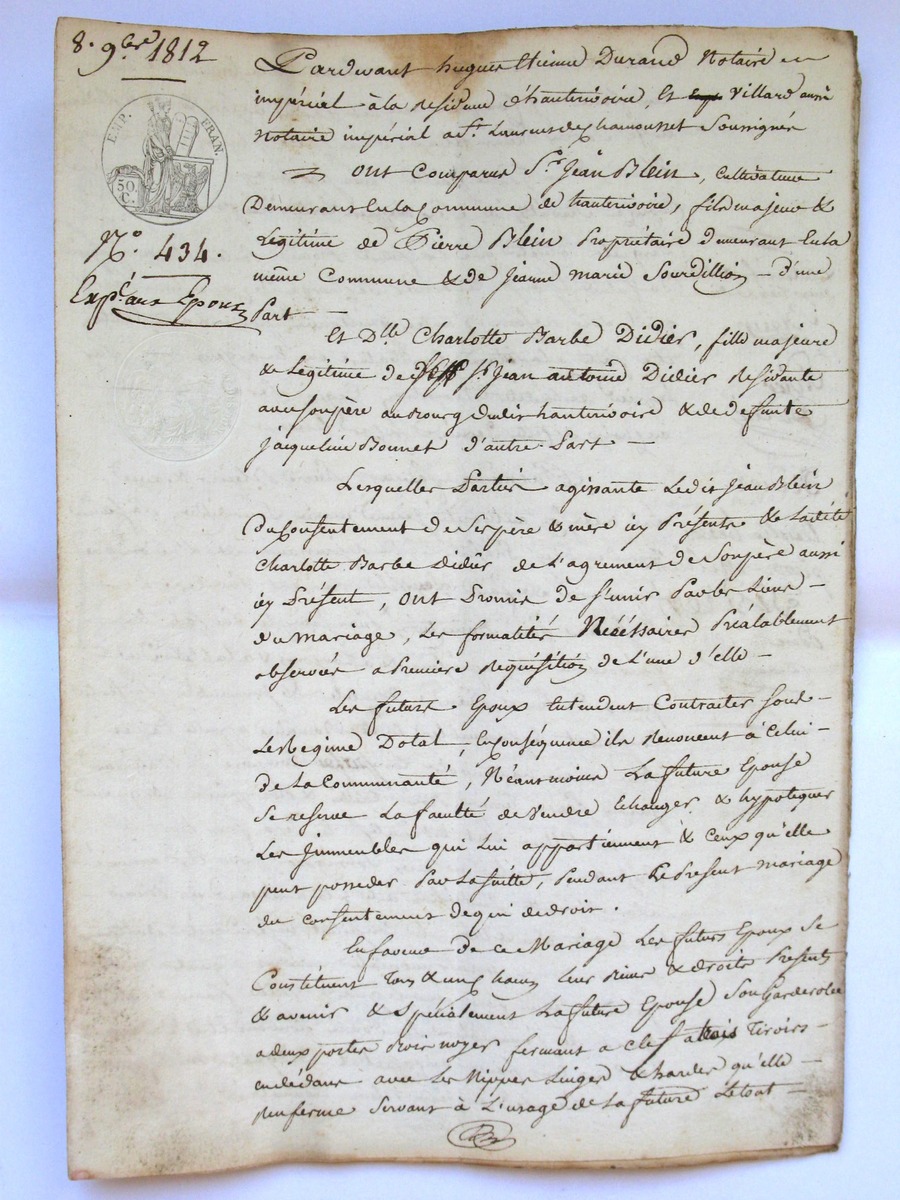 8. 9bre 1812
EMP. FRAN.
50 C.
N.o 434.
Expé. aux Epoux
Pardevant hugues Etienne Durand Notaire
impérial à la residence d'hauterivoire, et Villard aussi
Notaire impérial a St. Laurent de Chamousset Soussignés
Ont Comparus Sr. Jean Blein, Cultivateur
Demeurant en la Commune de hauterivoire, fils majeur &
Légitime de Pierre Blein Propriétaire demeurant en la
même Commune & de Jeanne marie Sourdillon – d'une
Part —
Et Dlle Charlotte Barbe Didier, fille majeure
& Légitime de Sr. Jean antoine Didier residante
avec son père au Bourg dudit hauterivoire & de defunte
Jacqueline Bonnet d'autre Part —
Lesquelles Parties agissante Ledit Jean Blein
Du Consentement de Ses père & mère icy Présents & Ladite
Charlotte Barbe Didier de L'agrement de Son père aussi
icy Présent, Ont Promis de S'unir Par les Liens –
du Mariage, Les formalités Nécéssaires Préalablement
observées a Première Requisition de L'une d'elle –
Les futurs Epoux Entendent Contracter Sous –
Le Regime Dotal, En Conséquence ils Renoncent à Celui –
de La Communauté, Néantmoins La future Epouse
Se reserve La faculté de Vendre Echanger & hypotequer
Les Immeubles qui Lui appartiennent & Ceux qu'elle
peut posseder Par La suitte, Pendant Le Présent mariage
du consentement de qui de droit.
En faveur de ce Mariage Les futurs Epoux Se
Constituent Tous & un chacun Leur Biens & droits Présents
& avenir & Spécialement La future Epouse Son Garderobe
a deux portes Bois noyer fermant a clef a trois Tiroirs –
en dédans avec Les Nippes Linges & hardes qu'elle –
renferme Servant à L'usage de La future Le tout –